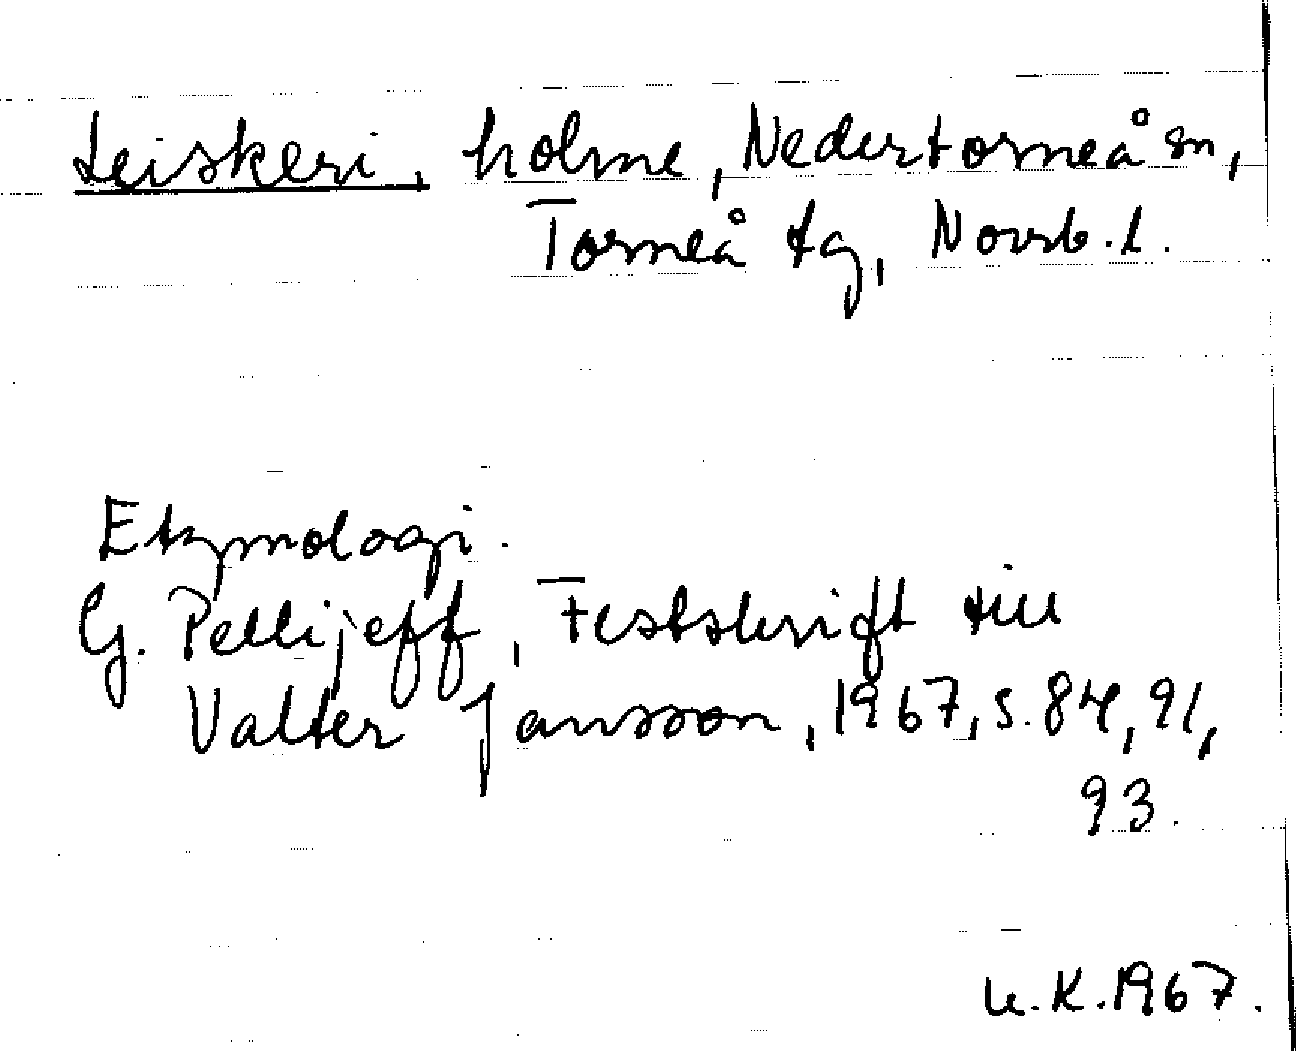 Leiskeri, holme, Nedertorneå sn,
Torneå tg, Norrb. l.
Etymologi.
G. Pellijeff, Festskrift till
Valter Jansson, 1967, s. 84, 91,
93.
U.K. 1967.